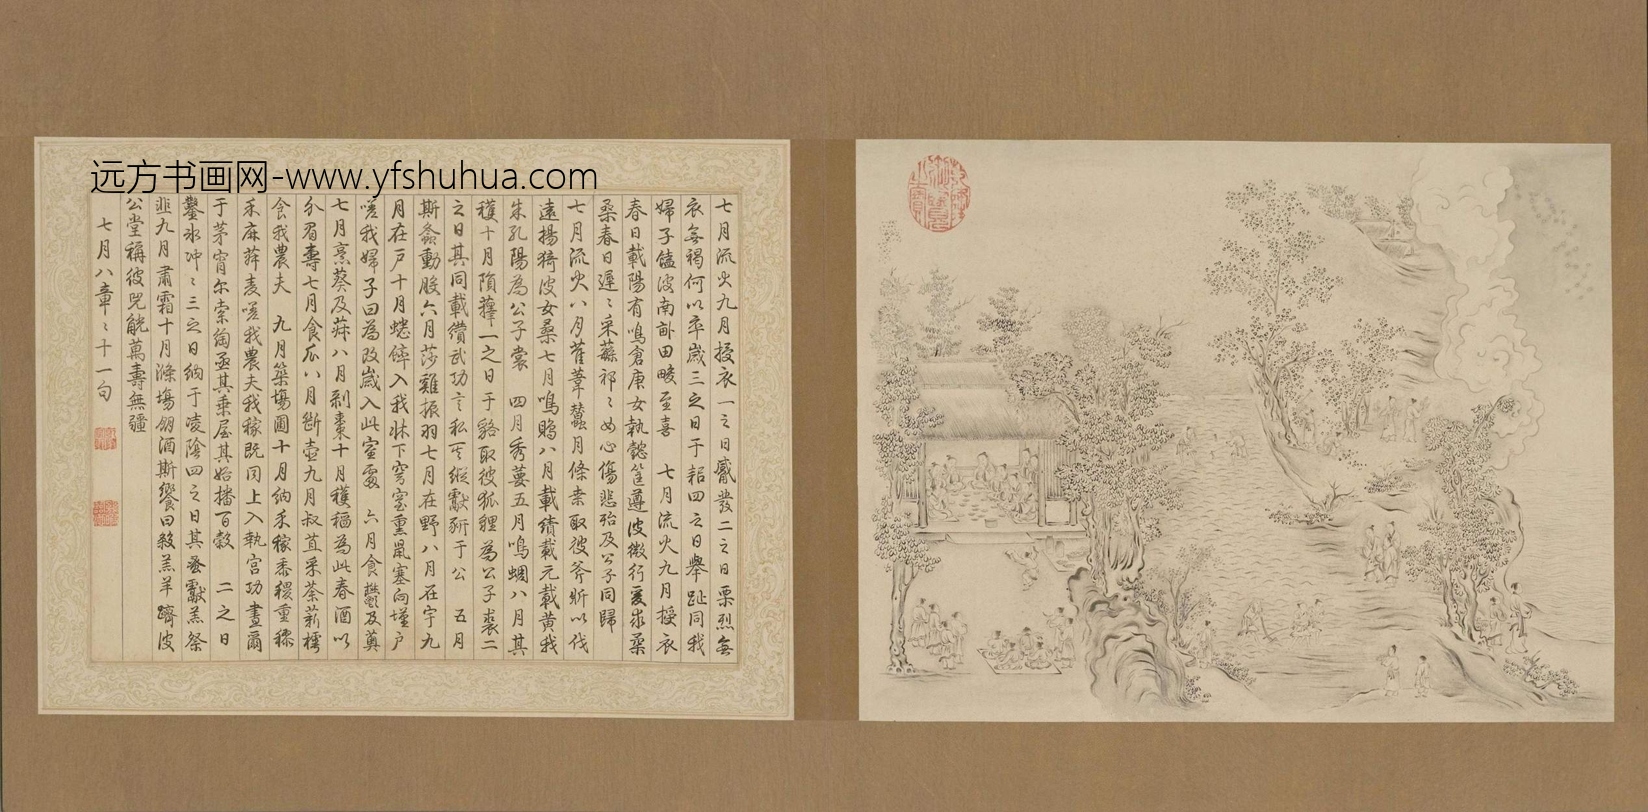 远方书画网-www.yfshuhua.com
七月流火九月授衣一之日觱發二之日栗烈無
衣無褐何以卒歲三之日于耜四之日舉趾同我
婦子饁彼南畝田畯至喜 七月流火九月授衣
春日載陽有鳴倉庚女執懿筐遵彼微行爰求柔
桑春日遲〻采蘩祁〻女心傷悲殆及公子同歸
七月流火八月萑葦蠶月條桑取彼斧斨以伐
遠揚猗彼女桑七月鳴鵙八月載績載元載黃我
朱孔陽為公子裳 四月秀葽五月鳴蜩八月其
穫十月隕蘀一之日于貉取彼狐貍為公子裘二
之日其同載纘武功言私其豵獻豜于公 五月
斯螽動股六月莎雞振羽七月在野八月在宇九
月在戶十月蟋蟀入我牀下穹窒熏鼠塞向墐戶
嗟我婦子曰為改歲入此室處 六月食鬱及薁
七月烹葵及菽八月剝棗十月穫稻為此春酒以
介眉壽七月食瓜八月斷壺九月叔苴采荼薪樗
食我農夫 九月築場圃十月納禾稼黍稷重穋
禾麻菽麥嗟我農夫我稼既同上入執宮功晝爾
于茅宵尔索綯亟其乘屋其始播百穀 二之日
鑿冰沖〻三之日納于凌陰四之日其蚤獻羔祭
韭九月肅霜十月滌場朋酒斯饗曰殺羔羊躋彼
公堂稱彼兕觥萬壽無疆
七月八章〻十一句